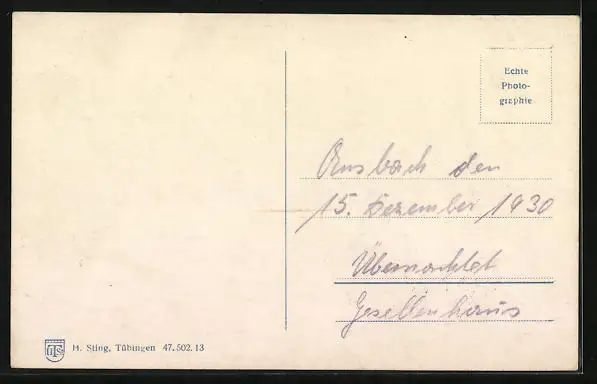 Echte
Photo-
graphie
Ansbach den
15. Dezember 1930
Übernachtet
Gesellenhaus
H. Sting, Tübingen 47.502.13